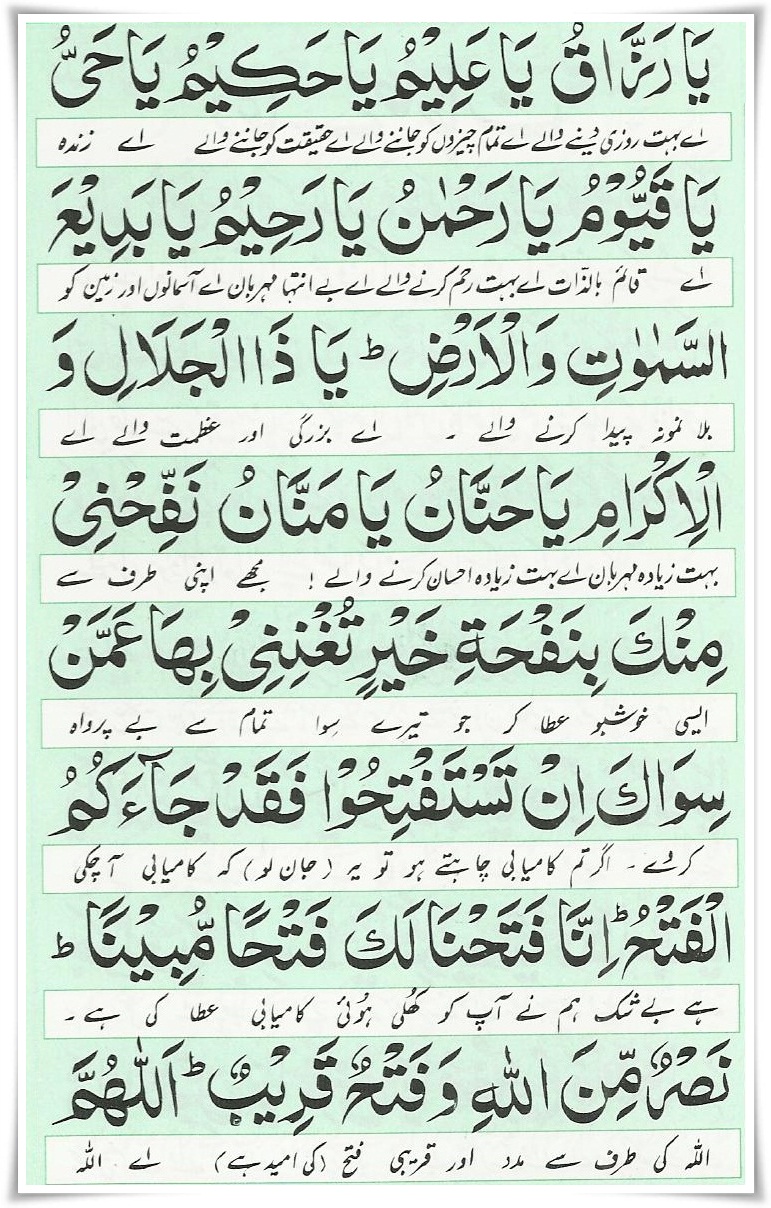 يَا رَزَّاقُ يَا عَلِيْمُ يَا حَكِيْمُ يَا حَيُّ
اے بہت روزی دینے والے اے تمام چیزوں کو جاننے والے اے حقیقت کو جاننے والے اے زندہ
يَا قَيُّوْمُ يَا رَحْمٰنُ يَا رَحِيْمُ يَا بَدِيْعَ
اے قائم بالذّات اے بہت رحم کرنے والے اے بے انتہا مہربان اے آسمانوں اور زمین کو
السَّمٰوٰتِ وَالْاَرْضِ ط يَا ذَا الْجَلَالِ وَ
بلا نمونہ پیدا کرنے والے ۔ اے بزرگی اور عظمت والے اے
الْاِكْرَامِ يَا حَنَّانُ يَا مَنَّانُ نَفِّحْنِيْ
بہت زیادہ مہربان اے بہت زیادہ احسان کرنے والے ! مجھے اپنی طرف سے
مِنْكَ بِنَفْحَةِ خَيْرٍ تُغْنِنِيْ بِهَا عَمَّنْ
ایسی خوشبو عطا کر جو تیرے سِوا تمام سے بے پرواہ
سِوَاكَ اِنْ تَسْتَفْتِحُوْا فَقَدْ جَآءَكُمُ
کردے ۔ اگر تم کامیابی چاہتے ہو تو یہ (جان لو) کہ کامیابی آ چکی
الْفَتْحُ ط اِنَّا فَتَحْنَا لَكَ فَتْحًا مُّبِيْنًا ط
ہے بے شک ہم نے آپ کو کُھلی ہُوئی کامیابی عطا کی ہے ۔
نَصْرٌ مِّنَ اللّٰهِ وَفَتْحٌ قَرِيْبٌ ط اَللّٰهُمَّ
اللہ کی طرف سے مدد اور قریبی فتح (کی امید ہے) اے اللہ